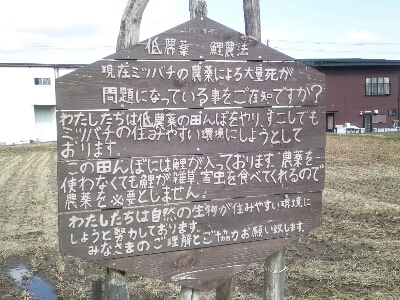 低農薬 鯉農法
現在ミツバチの農薬による大量死が
問題になっている事をご存知ですか?
わたしたちは低農薬の田んぼをやり、すこしでも
ミツバチの住みやすい環境にしようとして
おります。
この田んぼには鯉が入っております。農薬を
使わなくても鯉が雑草、害虫を食べてくれるので
農薬を必要としません。
わたしたちは自然の生物が住みやすい環境に
しようと努力しております。
みなさまのご理解とご協力お願い致します。